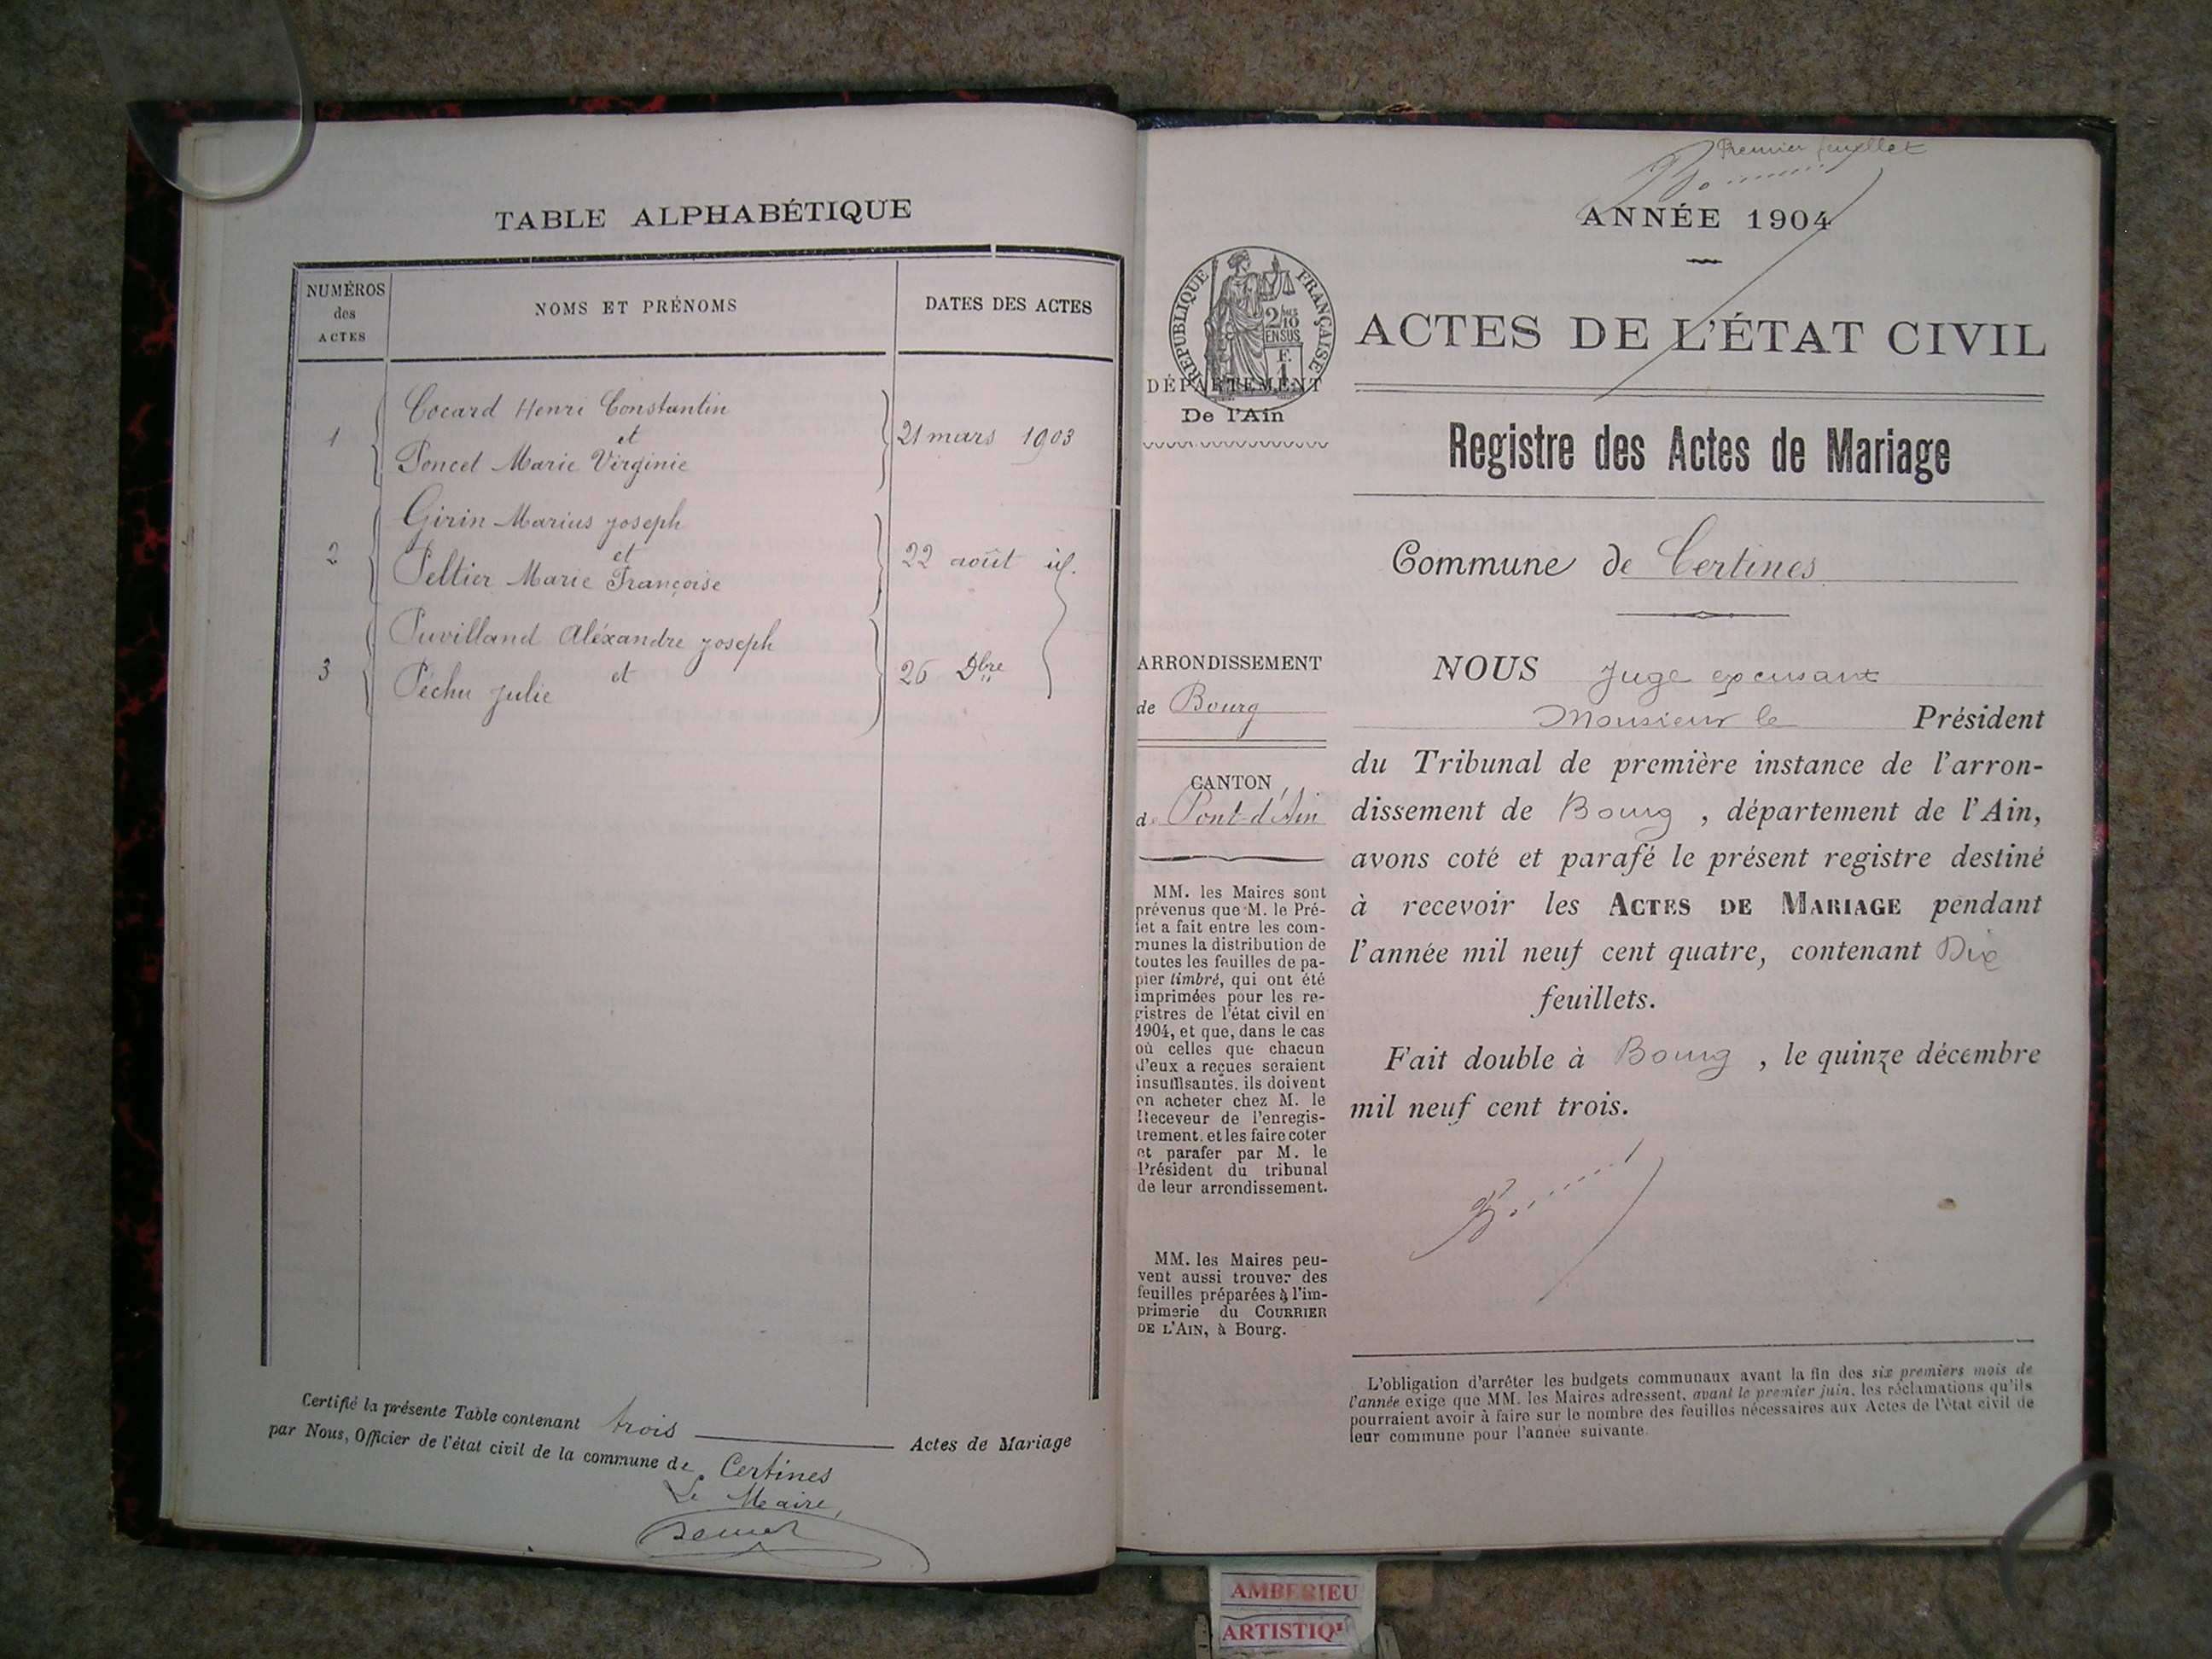 TABLE ALPHABÉTIQUE
NUMÉROS
des
ACTES
NOMS ET PRÉNOMS
DATES DES ACTES
Cocard Henri Constantin
1 et 21 mars 1903
Poncet Marie Virginie
Girin Marius Joseph
2 et 22 août id.
Peltier Marie Françoise
Puvilland Aléxandre Joseph
3 et 26 Dbre
Péchu Julie
Certifié la présente Table contenant trois Actes de Mariage
par Nous, Officier de l'état civil de la commune de Certines
Le Maire,
Premier feuillet
ANNÉE 1904
RÉPUBLIQUE FRANÇAISE
2/10
EN SUS
F.
1
DÉPARTEMENT
De l'Ain
ACTES DE L'ÉTAT CIVIL
Registre des Actes de Mariage
Commune de Certines
ARRONDISSEMENT
de Bourg
CANTON
de Pont-d'Ain
MM. les Maires sont
prévenus que M. le Pré-
fet a fait entre les com-
munes la distribution de
toutes les feuilles de pa-
pier timbré, qui ont été
imprimées pour les re-
gistres de l'état civil en
1904, et que, dans le cas
où celles que chacun
d'eux a reçues seraient
insuffisantes, ils doivent
en acheter chez M. le
Receveur de l'enregis-
trement, et les faire coter
et parafer par M. le
Président du tribunal
de leur arrondissement.
MM. les Maires peu-
vent aussi trouver des
feuilles préparées à l'im-
primerie du COURRIER
DE L'AIN, à Bourg.
NOUS Juge excusant
Monsieur le Président
du Tribunal de première instance de l'arron-
dissement de Bourg, département de l'Ain,
avons coté et parafé le présent registre destiné
à recevoir les ACTES DE MARIAGE pendant
l'année mil neuf cent quatre, contenant Dix
feuillets.
Fait double à Bourg, le quinze décembre
mil neuf cent trois.
L'obligation d'arrêter les budgets communaux avant la fin des six premiers mois de
l'année exige que MM. les Maires adressent, avant le premier juin, les réclamations qu'ils
pourraient avoir à faire sur le nombre des feuilles nécessaires aux Actes de l'état civil de
leur commune pour l'année suivante.
AMBERIEU
ARTISTIQ